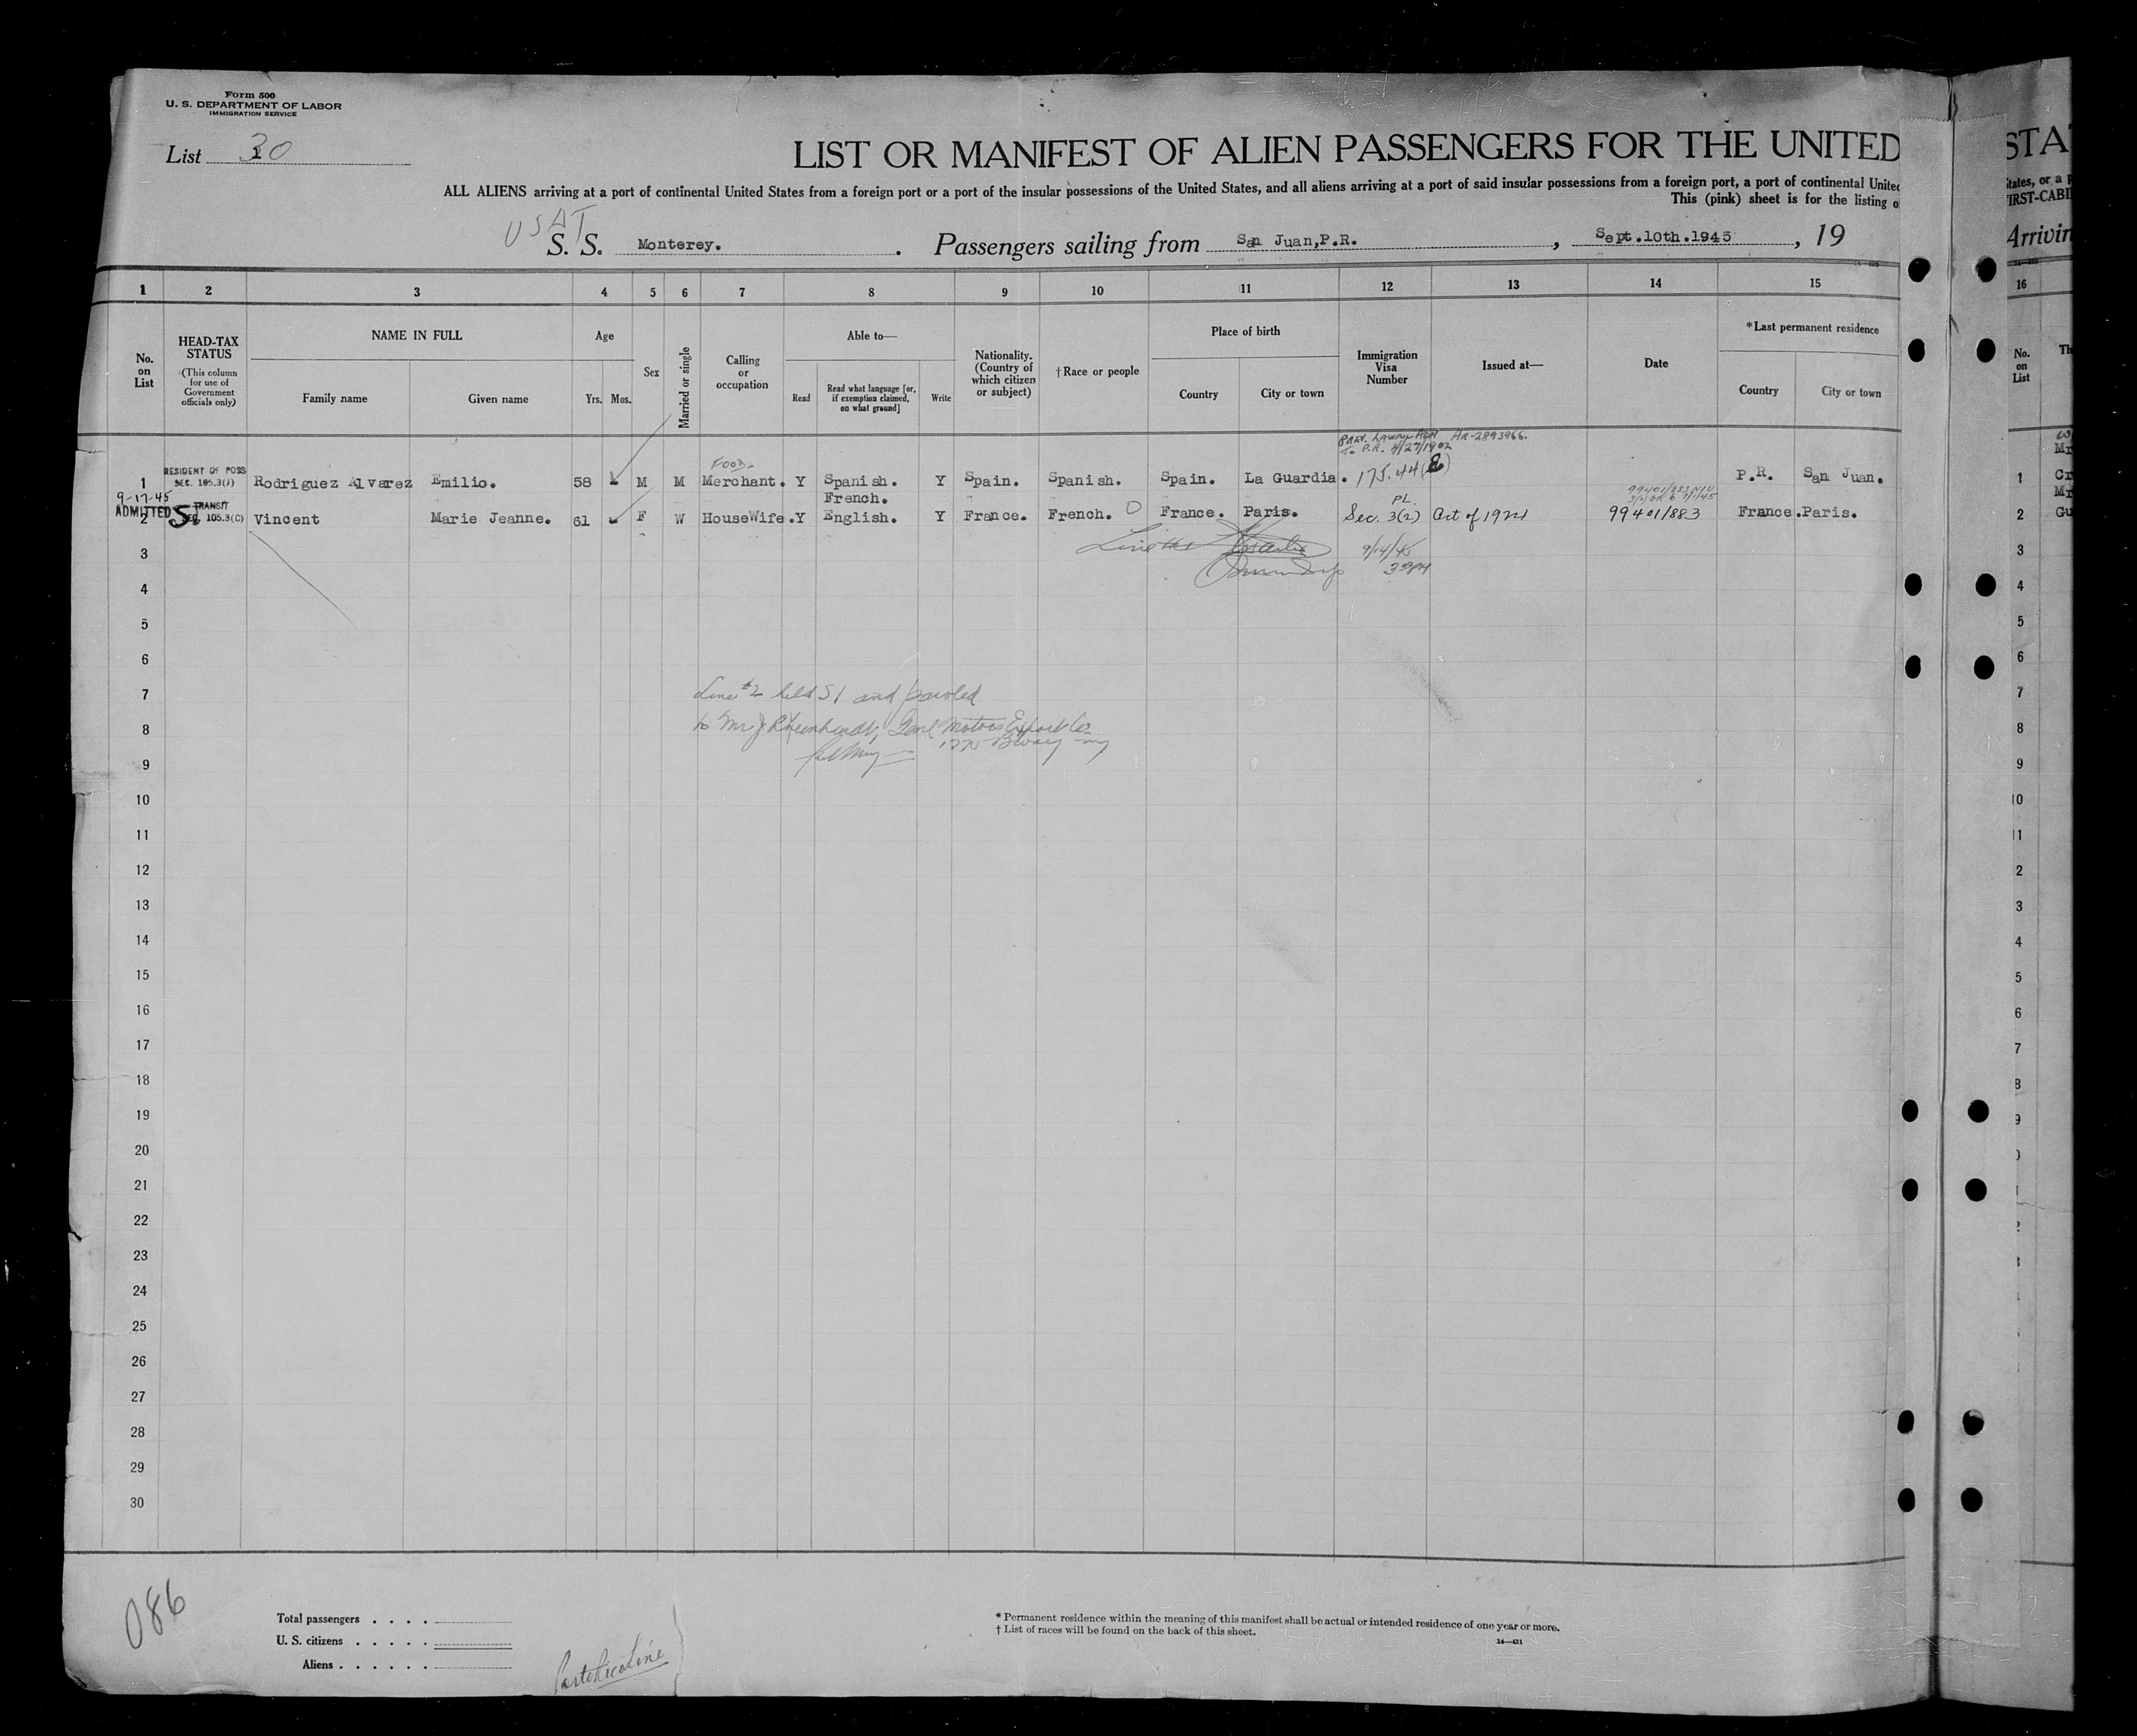 Form 500
U. S. DEPARTMENT OF LABOR
IMMIGRATION SERVICE
List 30
LIST OR MANIFEST OF ALIEN PASSENGERS FOR THE UNITED
ALL ALIENS arriving at a port of continental United States from a foreign port or a port of the insular possessions of the United States, and all aliens arriving at a port of said insular possessions from a foreign port, a port of continental United
This (pink) sheet is for the listing o
USAT
S. S. Monterey. Passengers sailing from San Juan,P.R. , Sept.10th.1945 , 19
STA
States, or a p
IRST-CABI
Arrivin
1 2 3 4 5 6 7 8 9 10 11 12 13 14 15 16
No. on List
HEAD-TAX STATUS
(This column for use of Government officials only)
NAME IN FULL
Family name Given name
Age
Yrs. Mos.
Sex
Married or single
Calling or occupation
Able to—
Read
Read what language [or, if exemption claimed, on what ground]
Write
Nationality. (Country of which citizen or subject)
†Race or people
Place of birth
Country City or town
Immigration Visa Number
Issued at—
Date
*Last permanent residence
Country City or town
No. on List
Th
AR-2893966.
To P.R. 4/27/1902
RESIDENT OF POSS
SEC. 105.3(1)
FOOD.
1 Rodriguez Alvarez Emilio. 58 M M Merchant. Y Spanish. Y Spain. Spanish. Spain. La Guardia. 175.44(E) P.R. San Juan. 1
9-17-45
ADMITTED
TRANSIT
SEC. 105.3(C)
French.
PL.
2 Vincent Marie Jeanne. 61 F W HouseWife. Y English. Y France. French. France. Paris. Sec. 3(2) Act of 1924 99401/883 France. Paris. 2
3 9/14/45 3
4 4
5 5
6 6
7 Line #2 held SI and paroled 7
8 to Mr J Rheinhardt, Genl Motors Export Co 8
1775 Bway ny
9 9
10 10
11 11
12 2
13 3
14 4
15 5
16 6
17 7
18 8
19 9
20
21
22
23
24
25
26
27
28
29
30
086
Total passengers . . . .
U. S. citizens . . . . .
Aliens . . . . . .
Porto Rico Line
* Permanent residence within the meaning of this manifest shall be actual or intended residence of one year or more.
† List of races will be found on the back of this sheet.
14—431